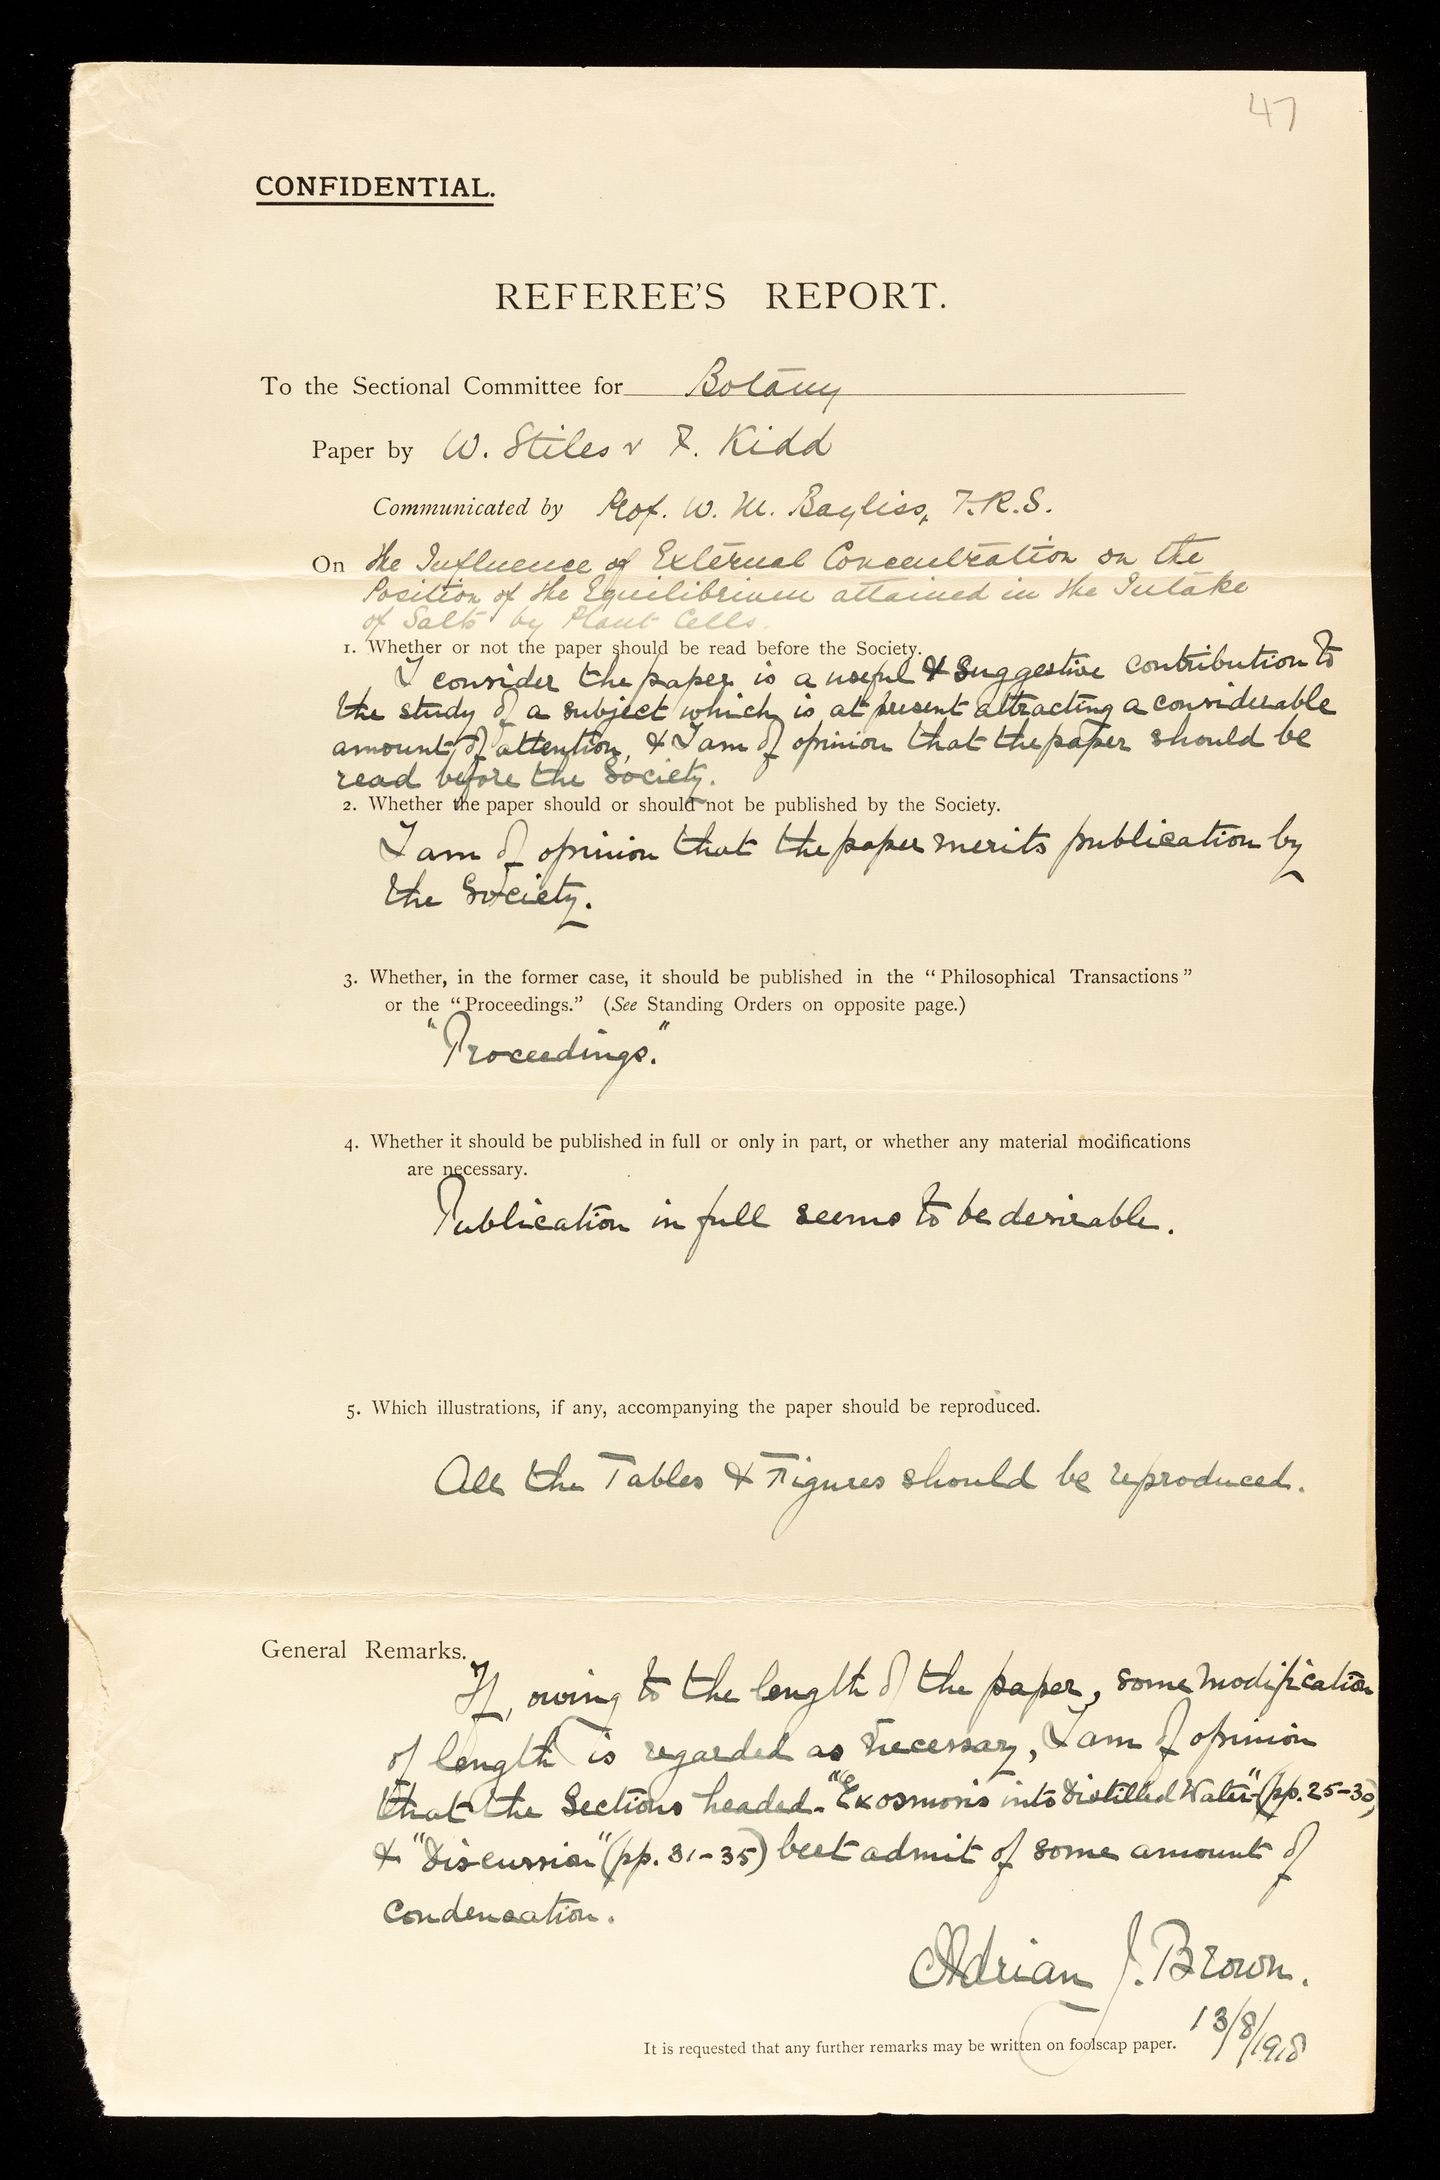 47
CONFIDENTIAL.
REFEREE'S REPORT.
To the Sectional Committee for Botany
Paper by W. Stiles & F. Kidd
Communicated by Prof. W. M. Bayliss, F.R.S.
On the Influence of External Concentration on the
Position of the Equilibrium attained in the Intake
of Salts by Plant Cells.
1. Whether or not the paper should be read before the Society.
I consider the paper is a useful & suggestive contribution to
the study of a subject which is at present attracting a considerable
amount of attention, & I am of opinion that the paper should be
read before the Society.
2. Whether the paper should or should not be published by the Society.
I am of opinion that the paper merits publication by
the Society.
3. Whether, in the former case, it should be published in the "Philosophical Transactions"
or the "Proceedings." (See Standing Orders on opposite page.)
"Proceedings."
4. Whether it should be published in full or only in part, or whether any material modifications
are necessary.
Publication in full seems to be desirable.
5. Which illustrations, if any, accompanying the paper should be reproduced.
All the Tables & Figures should be reproduced.
General Remarks.
If, owing to the length of the paper, some modification
of length is regarded as necessary, I am of opinion
that the Sections headed "Exosmosis into Distilled Water" (pp. 25-30)
& "Discussion" (pp. 31-35) best admit of some amount of
condensation.
Adrian J. Brown.
13/8/1918
It is requested that any further remarks may be written on foolscap paper.